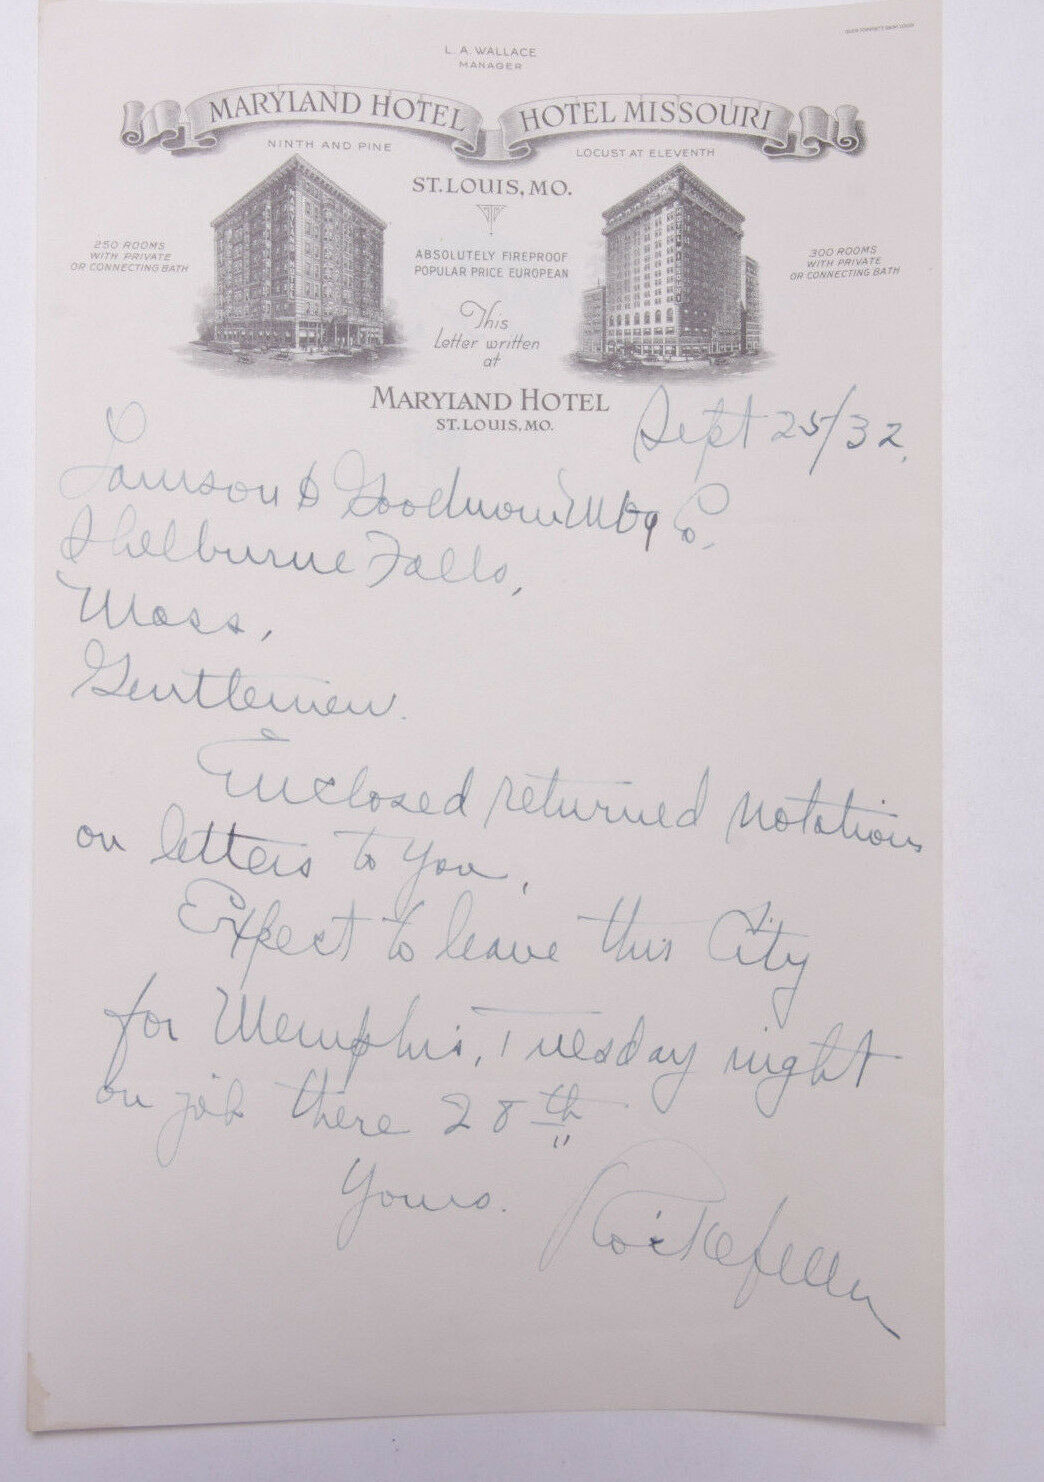 L. A. WALLACE
MANAGER
MARYLAND HOTEL
HOTEL MISSOURI
NINTH AND PINE
LOCUST AT ELEVENTH
ST. LOUIS, MO.
250 ROOMS
WITH PRIVATE
OR CONNECTING BATH
ABSOLUTELY FIREPROOF
POPULAR PRICE EUROPEAN
300 ROOMS
WITH PRIVATE
OR CONNECTING BATH
This
Letter written
at
MARYLAND HOTEL
ST. LOUIS, MO.
Sept 25/32.
Lamson & Goodnow Mfg Co.
Shelburne Falls,
Mass,
Gentlemen.
Enclosed returned notations
on letters to you,
Expect to leave this City
for Memphis, Tuesday night
on job there 28th
Yours.
Rockefeller